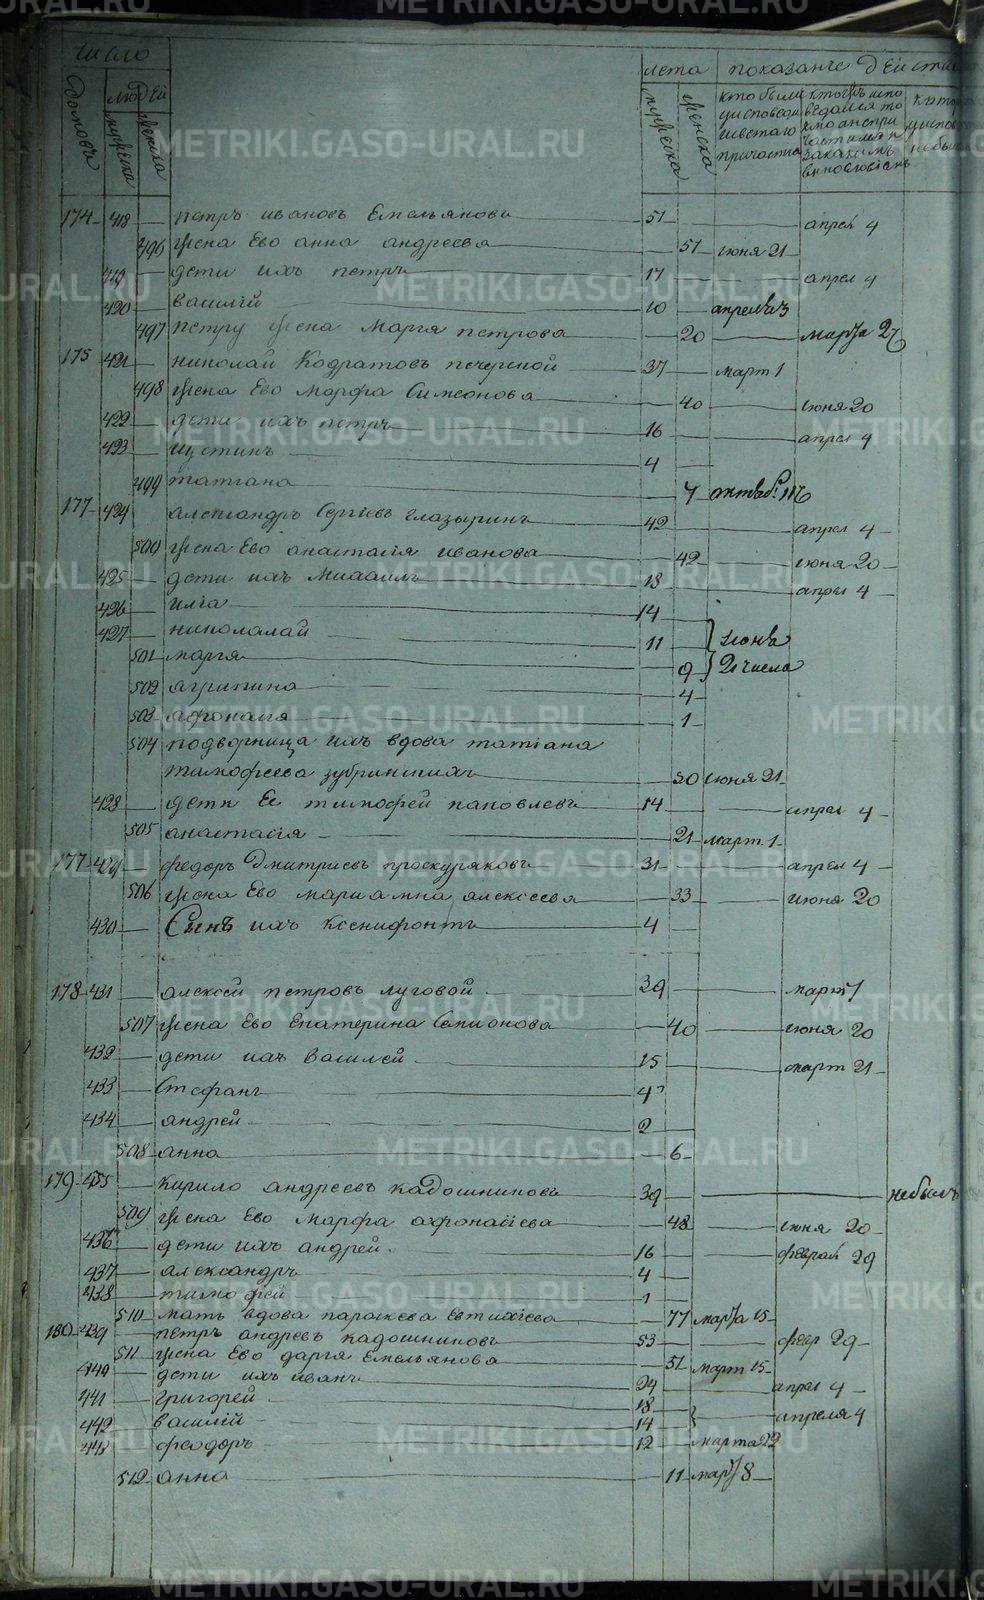 число
домовъ
людей
мужеска
женска
лета
показание действ
мужеска
женска
кто были
у исповеди
и светаго
причастия
ктожъ испо
ведался то
кмо а непри
частился и
за каким
винословіемъ
у испов
не был
174 418 петръ ивановъ Емельяновъ 51 апрел 4
496 жена Ево анна андреева 51 июня 21
419 дети ихъ петръ 17 апрел 4
420 василій 10 апреля 3
497 петру жена Мария петрова 20 марта 27
175 421 николай Кодратовъ печерской 37 март 1
498 жена Ево Марфа Симеонова 40 июня 20
422 дети ихъ петръ 16 апрел 4
423 иустинъ 4
499 татиана 7 октябр. 16
177 424 александръ Сергіевъ глазыринъ 42 апрел 4
500 жена Ево анастасия иванова 42 июня 20
425 дети ихъ михаилъ 18 апрел 4
426 илia 14
427 николалай 11 июня
501 мария 9 21 числа
502 агрипина 4
503 афонасия 1
504 подворница ихъ вдова татіана
тимофеева зубринскихъ 50 июня 21
428 дети Ее тимофей 14 апрел 4
505 анастасія 21 март 1
177 429 федоръ Дмитриевъ проскуряковъ 31 апрел 4
506 жена Ево мариамна алексеева 33 июня 20
430 Сынъ ихъ ксенифонтъ 4
178 431 алексей петровъ луговой 39 март 1
507 жена Ево Екатерина Семионова 40 июня 20
432 дети ихъ василей 15 март 21
433 Стефанъ 4
434 андрей 2
508 анна 6
179 435 кирило андреевъ кадошниковъ 39 небылъ
509 жена Ево Марфа афонасіева 48 июня 20
436 дети ихъ андрей 16 феврал 29
437 александръ 4
438 тимофей 1
510 мать вдова параскева Евтихіева 77 марта 15
180 439 петръ андреевъ кадошниковъ 53 февр 29
511 жена Ево дарія Емельянова 51 март 15
440 дети ихъ иванъ 24 апрел 4
441 григорей 18
442 василій 14 апреля 4
443 феодоръ 12 марта 22
512 анна 11 март 8
METRIKI.GASO-URAL.RU